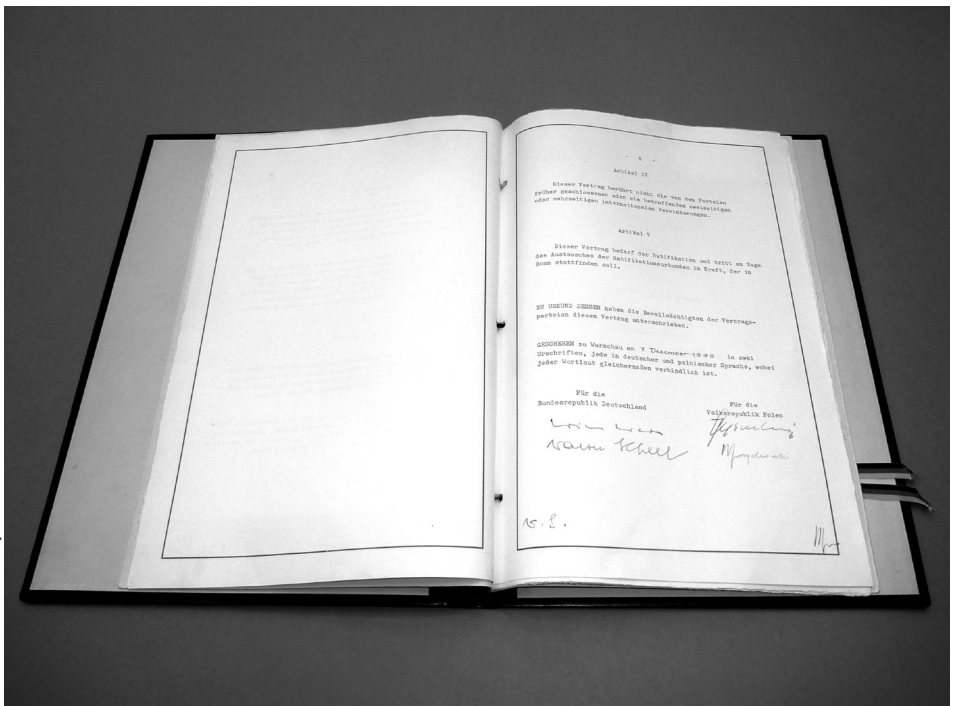 - 5 -
Artikel IV
Dieser Vertrag berührt nicht die von den Parteien
früher geschlossenen oder sie betreffenden zweiseitigen
oder mehrseitigen internationalen Vereinbarungen.
Artikel V
Dieser Vertrag bedarf der Ratifikation und tritt am Tage
des Austausches der Ratifikationsurkunden in Kraft, der in
Bonn stattfinden soll.
ZU URKUND DESSEN haben die Bevollmächtigten der Vertrags-
parteien diesen Vertrag unterschrieben.
GESCHEHEN zu Warschau am 7. Dezember 1970 in zwei
Urschriften, jede in deutscher und polnischer Sprache, wobei
jeder Wortlaut gleichermaßen verbindlich ist.
Für die
Bundesrepublik Deutschland
Walter Scheel
Für die
Volksrepublik Polen